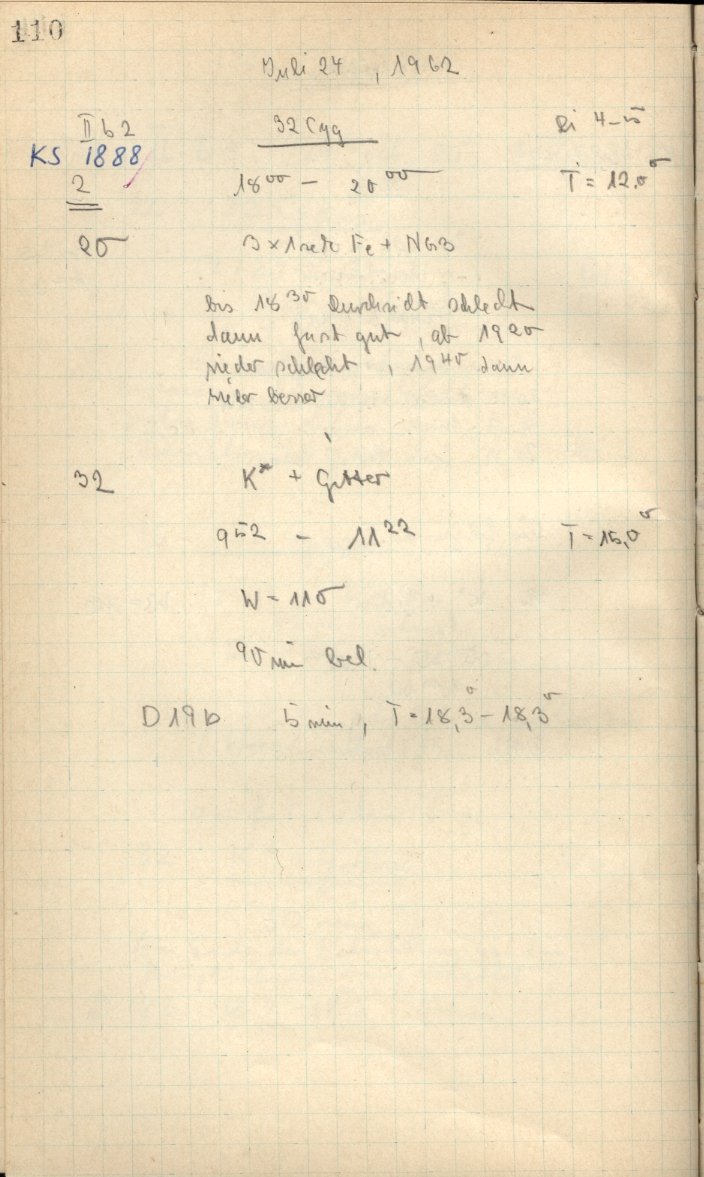 110
Juli 24, 1962
II b 2 32 Cyg 4-5
KS 1888
2 18 00 - 20 00 T = 12,0°
20 3 x 1 Fe + NG3
bis 18 30 Durchsicht schlecht
dann fast gut, ab 19 20
wieder schlecht, 19 40 dann
wieder besser
32 K* + Gitter
9 52 - 11 22 T = 15,0°
W = 110
90 min bel.
D 19 b 5 min, T = 18,3° - 18,3°